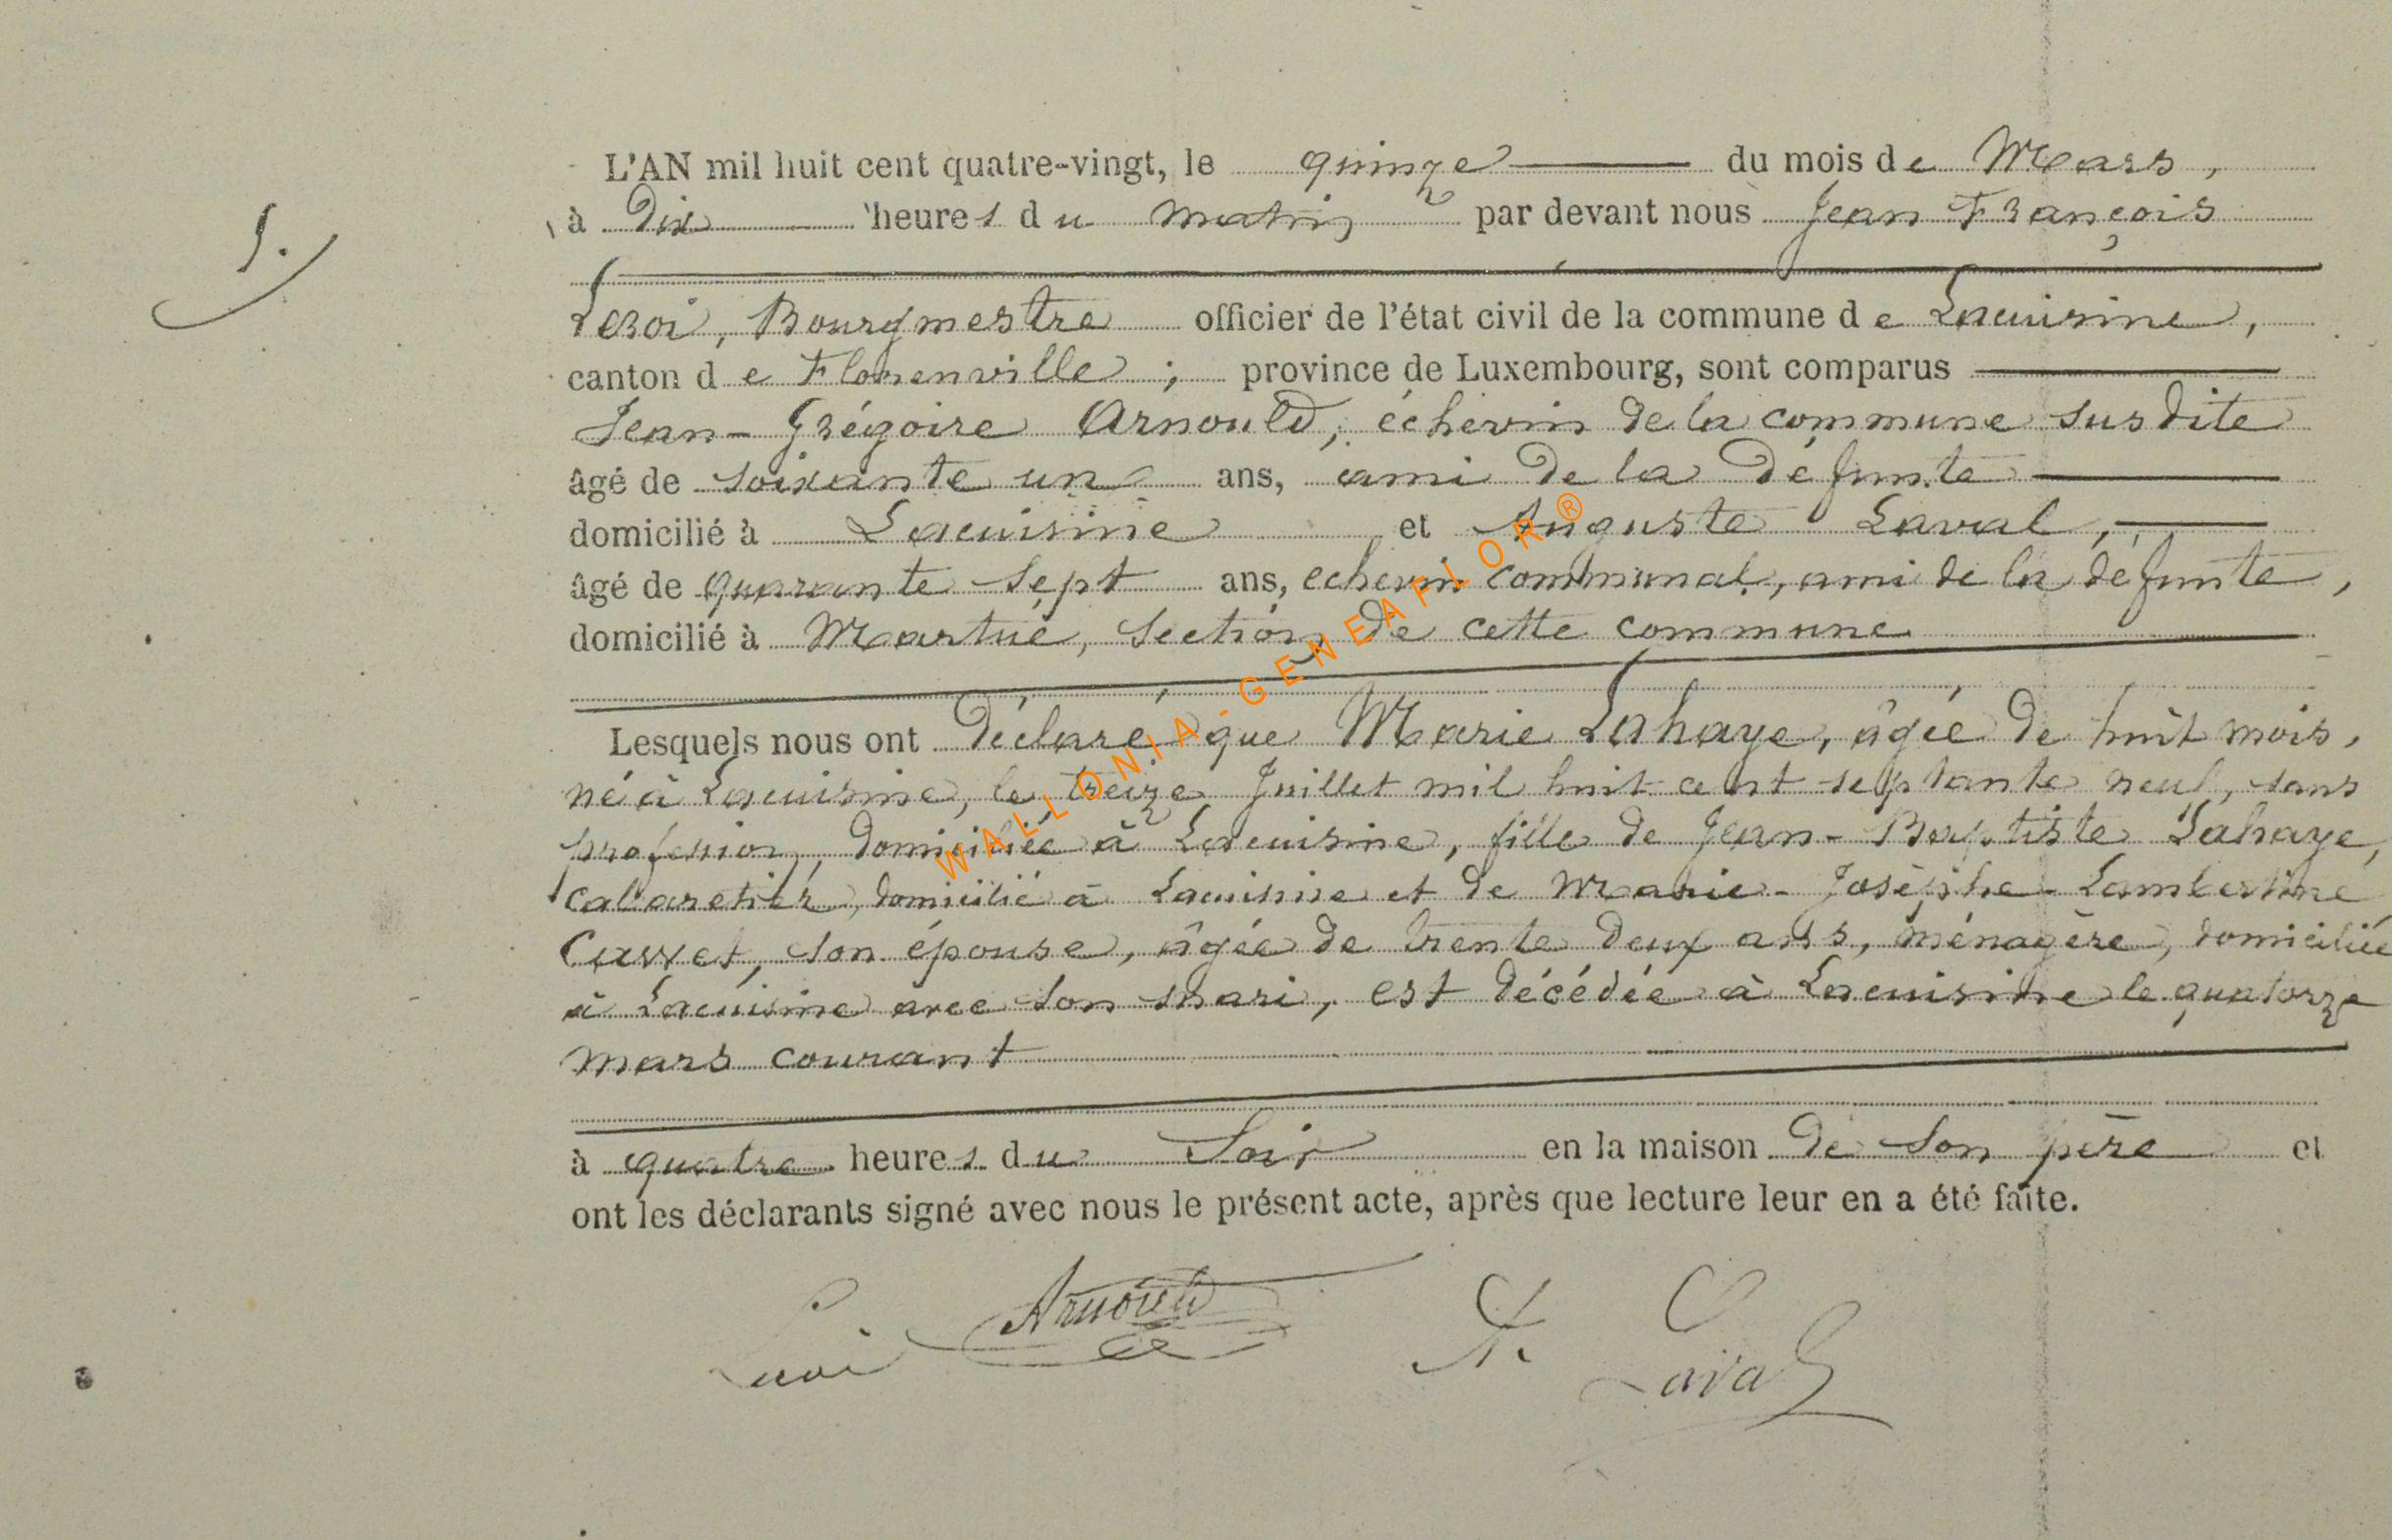 L'AN mil huit cent quatre-vingt, le quinze du mois de Mars,
5.
à Dix heures du matin par devant nous Jean François
Leroi, Bourgmestre officier de l'état civil de la commune de Lacuisine,
canton de Florenville ; province de Luxembourg, sont comparus
Jean-Grégoire Arnould, échevin de la commune susdite
âgé de soixante un ans, ami de la défunte
domicilié à Lacuisine et Auguste Laval,
âgé de quarante sept ans, echevin communal, ami de la défunte,
domicilié à Martué, section de cette commune
Lesquels nous ont déclaré que Marie Lahaye, âgée de huit mois,
né à Lacuisine, le treize Juillet mil huit cent septante neuf, sans
profession, domiciliée à Lacuisine, fille de Jean-Baptiste Lahaye,
cabaretier, domicilié à Lacuisine et de Marie-Josèphe-Lambertine
son épouse, âgée de trente deux ans, ménagère, domiciliée
à Lacuisine avec son mari, est décédée à Lacuisine le quatorze
mars courant
à quatre heures du Soir en la maison de son père et
ont les déclarants signé avec nous le présent acte, après que lecture leur en a été faite.
Leroi Arnould A. Laval
WALLONIA-GENEAFLOR®